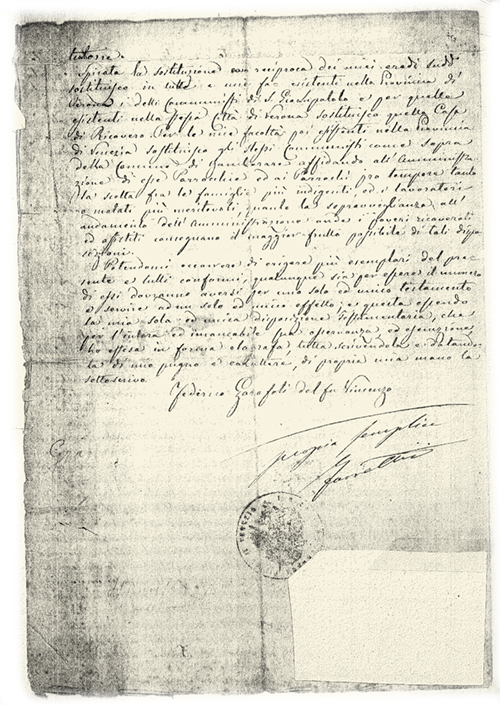 tutore.
Spirata la sostituzione reciproca dei miei eredi sudd
sostituisco in tutte e mie esistenti nella Provincia di
Verona i detti Communisti di S. e per quelle
esistenti nella stessa città di Verona sostituisco quella Casa
di Ricovero. Per le mie facoltà poi esistenti nella Provincia
di Venezia sostituisco gli stessi Communisti come sopra
della Comune di Gambarare affidando all'Amministra
zione di esse Parrocchie ed ai Parrochi pro tempore tanto
la scelta fra le famiglie più indigenti ed i lavoratori
o malati più meritevoli, quanto la sopravveglianza all'
andamento dell'Amministrazione onde i poveri ricoverati
ed assistiti conseguano il maggior frutto possibile di tali dispo
sizioni.
Potendomi occorrere di erigere più esemplari del pre
sente e tutti conformi, qualunque sia per essere il numero
di essi dovranno aversi per uno solo ed unico testamento
e servire ad un solo ed unico effetto; e questa essendo
la mia sola ed unica disposizione Testamentaria, che
per l'intera ed immancabile sua osservanza, ed esecuzione
ho estesa in forma olografa, tutta scrivendola e dettando
la di mio pugno e carattere, di propria mia mano la
sottoscrivo.
Federico Garofoli del fu Vincenzo
copia semplice